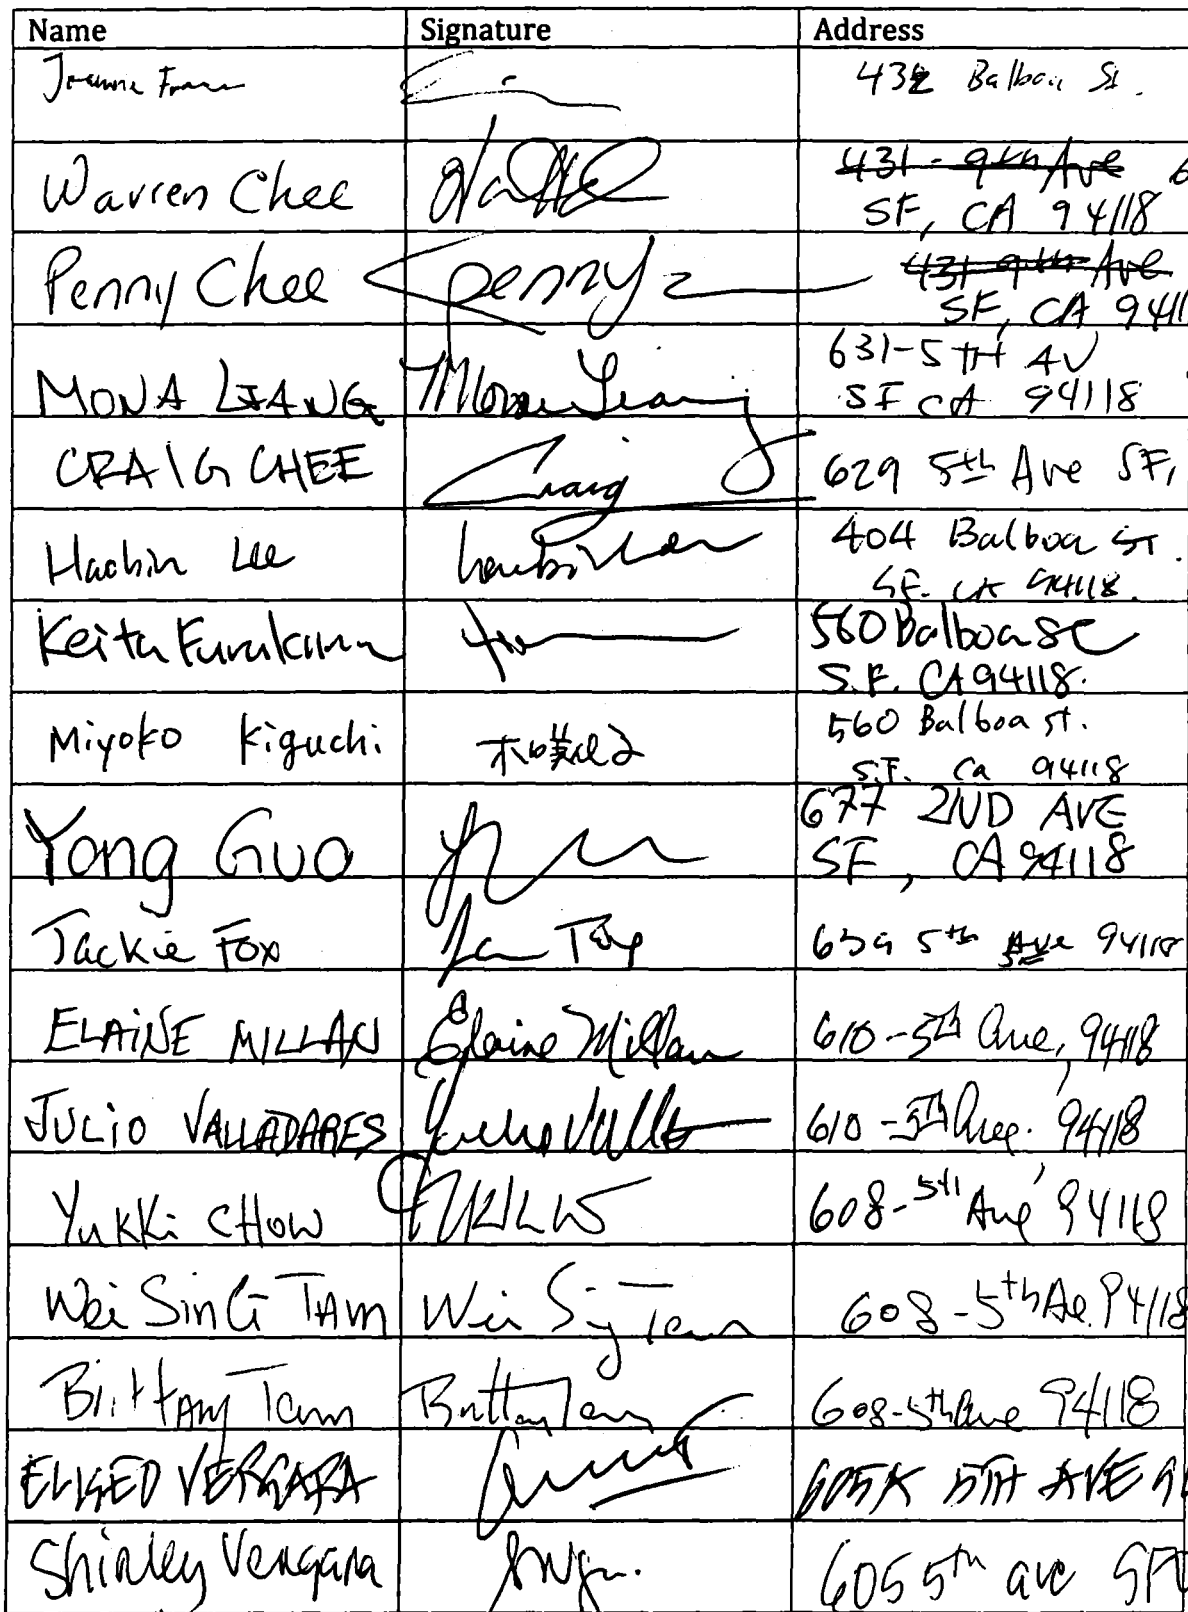 Name Signature Address
432 Balboa St.
Warren Chee 431 - 9th Ave 6
SF, CA 94118
Penny Chee Penny 431 9th Ave
SF, CA 9411
MONA LIANG Mona Liang 631-5TH AV
SF CA 94118
CRAIG CHEE Craig 629 5th Ave SF,
Haobin Lee 404 Balboa ST.
SF. CA 94118.
Keita Furukawa 560 Balboa St
S.F. CA 94118.
Miyoko Kiguchi 560 Balboa st.
S.F. Ca 94118
Yong Guo 677 2ND AVE
SF, CA 94118
Jackie Fox 639 5th Ave 94118
ELAINE MILLAN Elaine Millan 610-5th Ave, 94118
JULIO VALLADARES 610-5th Ave. 94118
Yukki CHOW 608-5th Ave 94118
Wei SinG TAM Wei Sing Tam 608-5th Ae. 94118
Brittany Tam Brittany Tam 608-5th Ave 94118
ELISEO VERGARA 5TH AVE
Shirley Vergara 605 5th ave SF